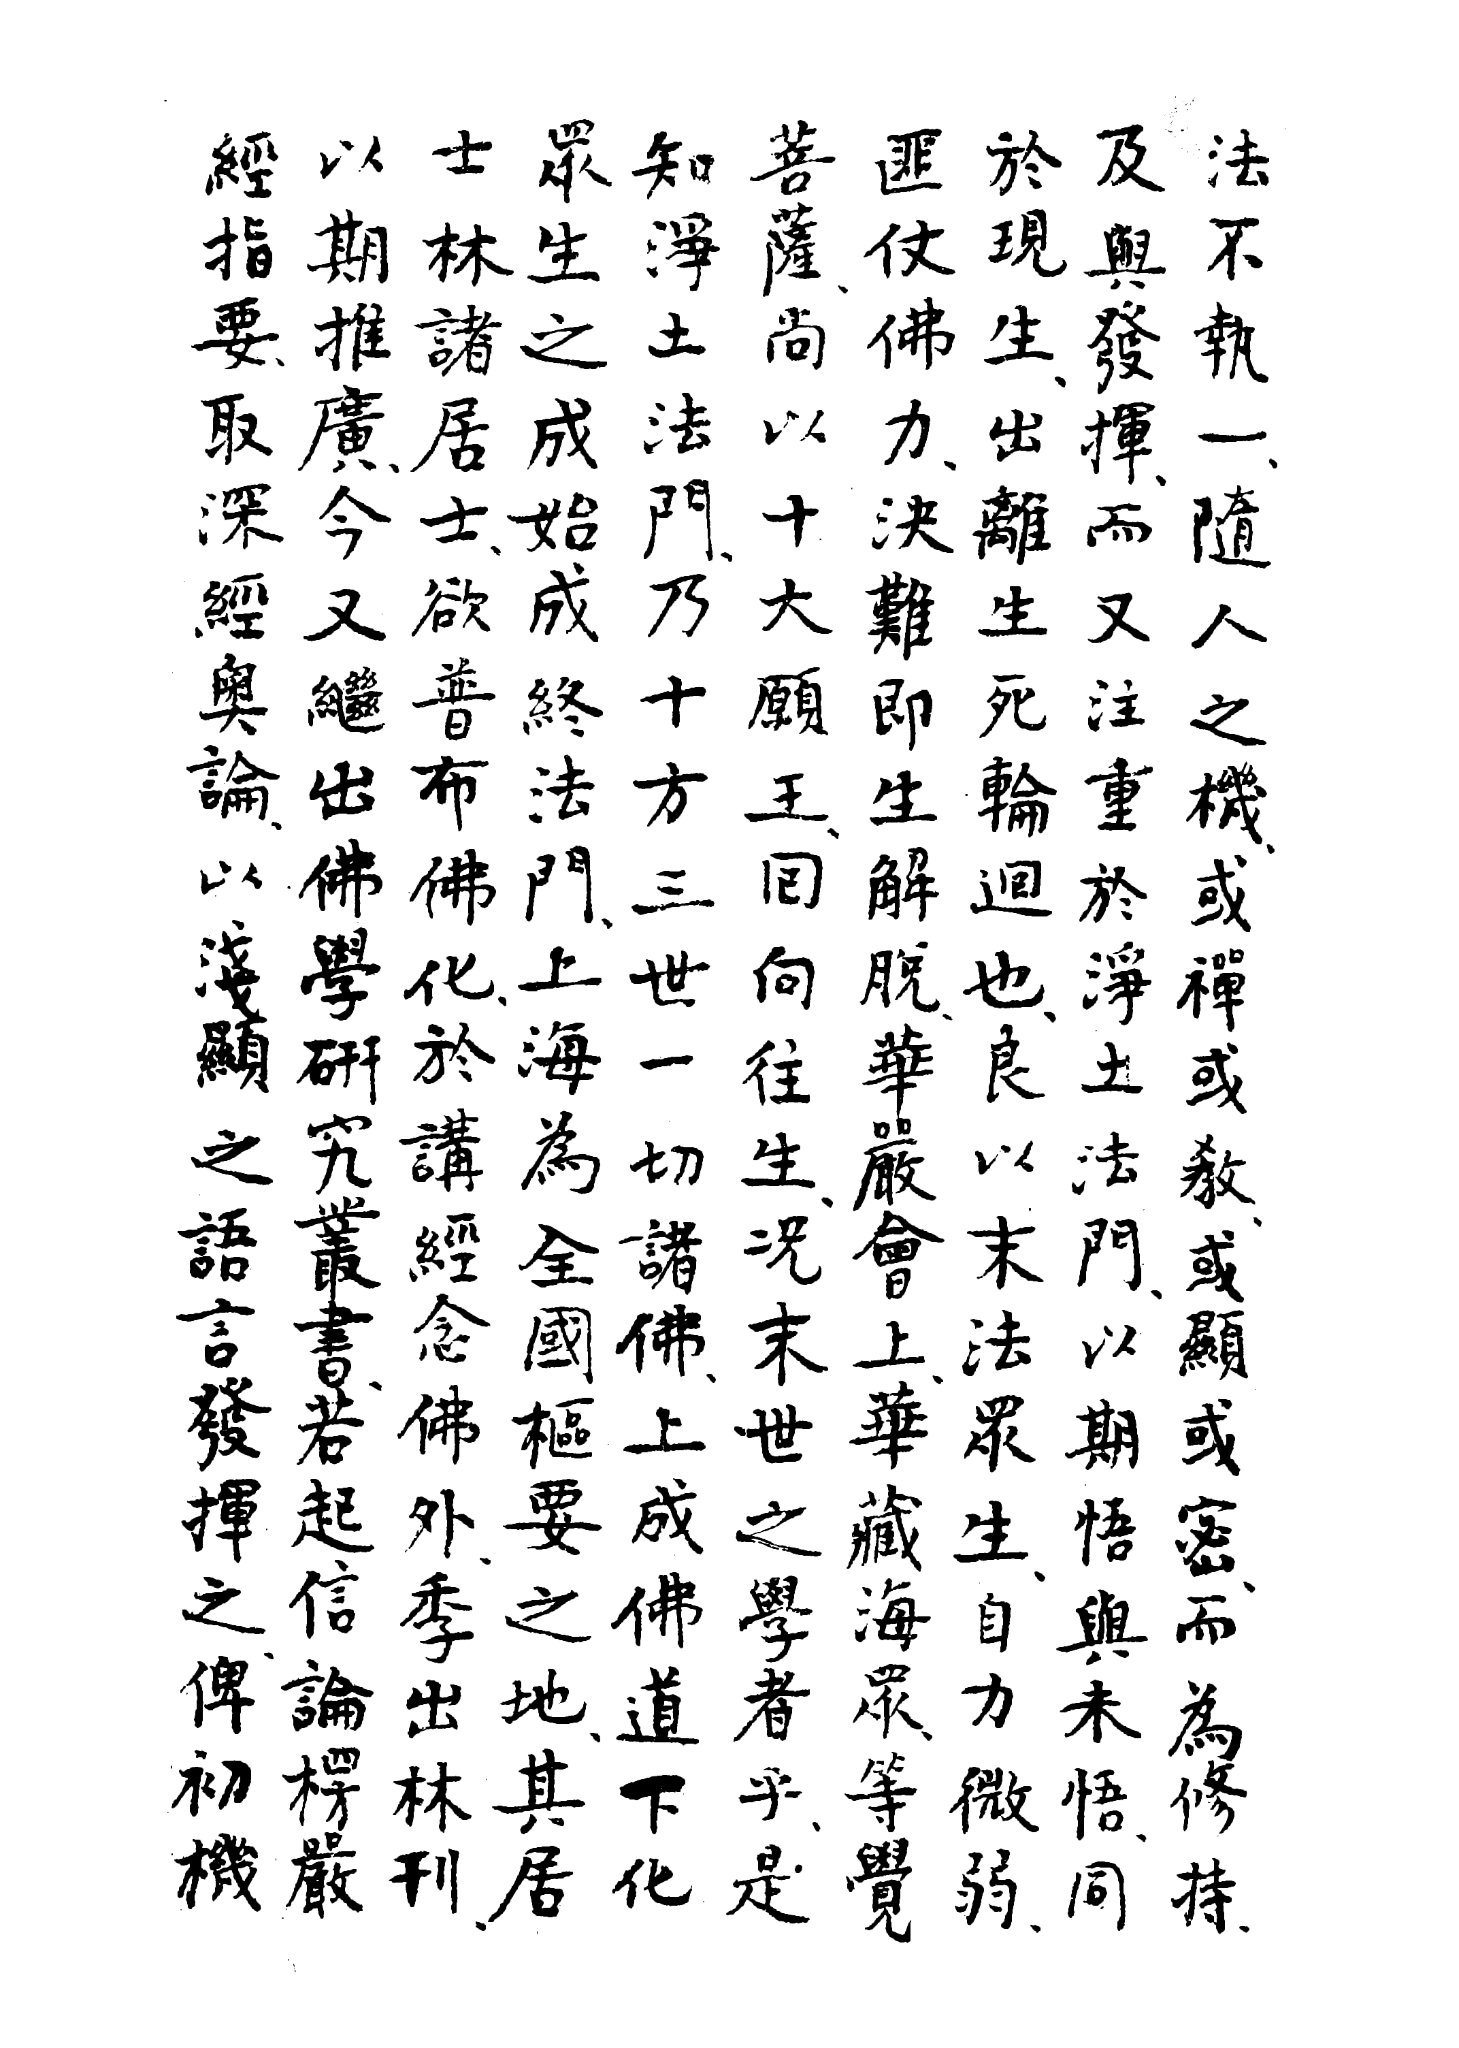 法不執一、隨人之機、或禪或教、或顯或密、而為修持、
及與發揮、而又注重於淨土法門、以期悟與未悟、同
於現生、出離生死輪迴也、良以末法眾生、自力微弱、
匪仗佛力、決難即生解脫、華嚴會上、華藏海眾、等覺
菩薩、尚以十大願王、回向往生、況末世之學者乎、是
知淨土法門、乃十方三世一切諸佛、上成佛道下化
眾生之成始成終法門、上海為全國樞要之地、其居
士林諸居士、欲普布佛化、於講經念佛外、季出林刊、
以期推廣、今又繼出佛學研究叢書、若起信論楞嚴
經指要、取深經奧論、以淺顯之語言發揮之、俾初機